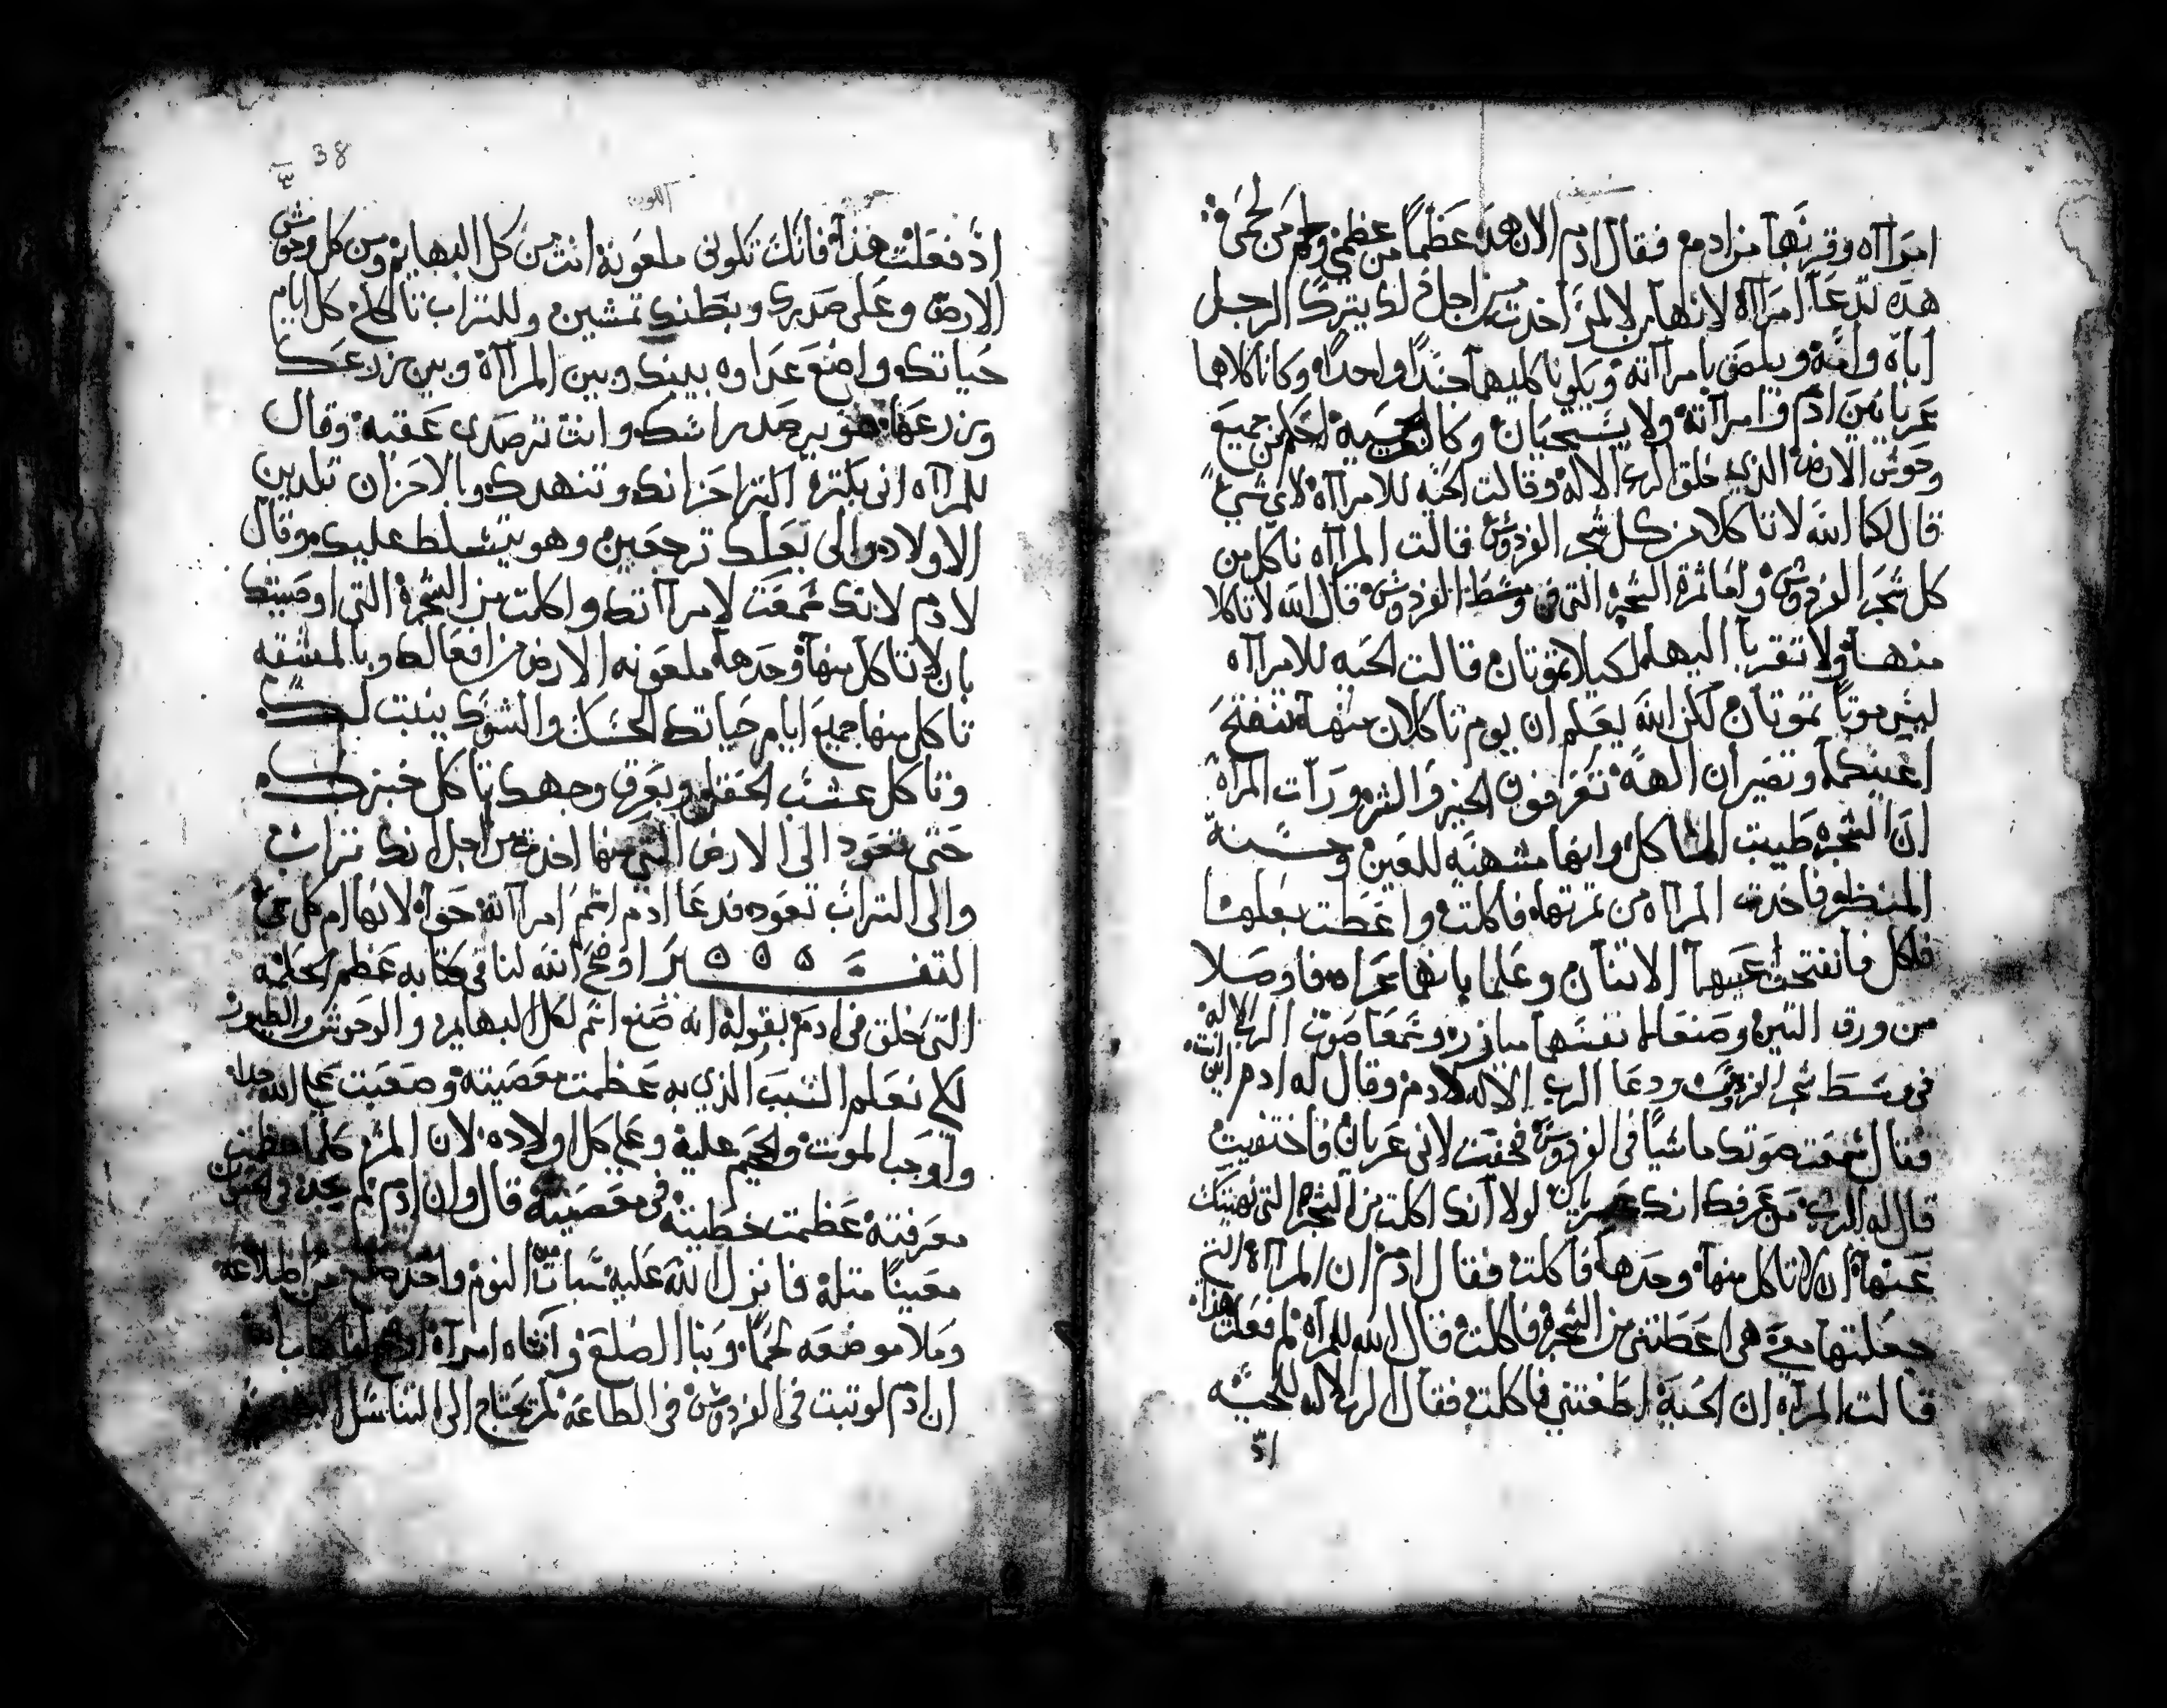 امرااه وقربها من ادم فقال ادم الان هدا عظماً من عظمي ولحم من لحمي
هده تدعا امرااه لانها من المرؤ اخدت من اجل دلك يترك الرجل
اباه وامه ويلصق بامرااته ويكونا كليهما جسداً واحداً وكانا كلاهما
عريانين ادم وامرااته ولا يستحيان وكانت الحيه احكم من جميع
وحوش الارض الذي خلق الرب الاله وقالت الحيه للامرااه لاي شيء
قال لكما الله لا تاكلا من كل شجر الفردوس قالت المرااه ناكل من
كل شجر الفردوس واما ثمرة الشجره التي في وسط الفردوس قال الله لا تاكلا
منها ولا تقربا اليها لكيلا تموتان قالت الحيه للامرااه
ليس موتاً تموتان لكن الله يعلم ان يوم تاكلان منها تنفتح
اعينكما وتصيران الهة تعرفون الخير والشر ورات المراه
ان الشجره طيبت الماكل وانها مشهيه للعين وحسنة
المنظر فاخدت المرااه من ثمرتها فاكلت واعطت بعلها
فاكل فانفتحت عينيهما الاثنان وعلما بانهما عراه فاوصلا
من ورق التين وصنعا لانفسهما ميازر وسمعا صوت الرب الاله
في وسط شجر الفردوس ودعا الرب الاله لادم وقال له ادم اين انت
فقال سمعت صوتك ماشياً في الفردوس فخفت لاني عريان فاختفيت
قال له الرب من عرفك انك عريان لولا انك اكلت من الشجره التي نهيتك
عنها ان لا تاكل منها وحدها فاكلت فقال ادم ان المرااه التي
جعلتها معي هي اعطتني من الشجره فاكلت قال الله للمراه لم فعلت هذا
قالت المراه ان الحية اطغتني فاكلت فقال الرب الاله للحيه
اذ
38
اذ فعلت هذا فانك تكوني ملعونة انت من كل البهايم ومن كل وحوش
الارض وعلى صدرك وبطنك تمشين وللتراب تاكلي كل ايام
حياتك واضع عداوه بينك وبين المرااة وبين زرعك
وزرعها هو يرصد راسك وانت ترصدي عقبه وقال
للمرااه اني بكثرة اكثر احزانك وتنهدك وبالاحزان تلدين
الاولاد والى بعلك ترجعين وهو يتسلط عليك وقال
لادم لانك سمعت لامرااتك واكلت من الشجرة التي اوصيتك
بان لا تاكل منها وحدها ملعونه الارض من افعالك وبالمشقه
تاكل منها جميع ايام حياتك الحسك والشوك ينبت لك
وتاكل عشب الحقل وبعرق وجهك تاكل خبزك
حتى تعود الى الارض التي منها اخدت من اجل انك تراب
والى التراب تعود فدعا ادم اسم امرااته حوا لانها ام كل حي
التفسير اوضح الله لنا في كتابه عظم الحكمه
التي خلق في ادم بقوله انه صنع اسم لكل البهايم والوحوش والطيور
لكي نعلم السبب الذي به عظمت معصيته وصعبت على الله جدا
واوجب الموت والجحيم عليه وعلى كل اولاده لان المرء كلما عظمت
معرفته عظمت خطيته في معصيته قال وان ادم لم يجد
معيناً مثله فانزل الله عليه سبات النوم واخد ضلع من اضلاعه
وملا موضعه لحماً وبنا الضلع وانشاه امراة
ان ادم لو ثبت في الفردوس في الطاعه لم يحتاج الى التناسل